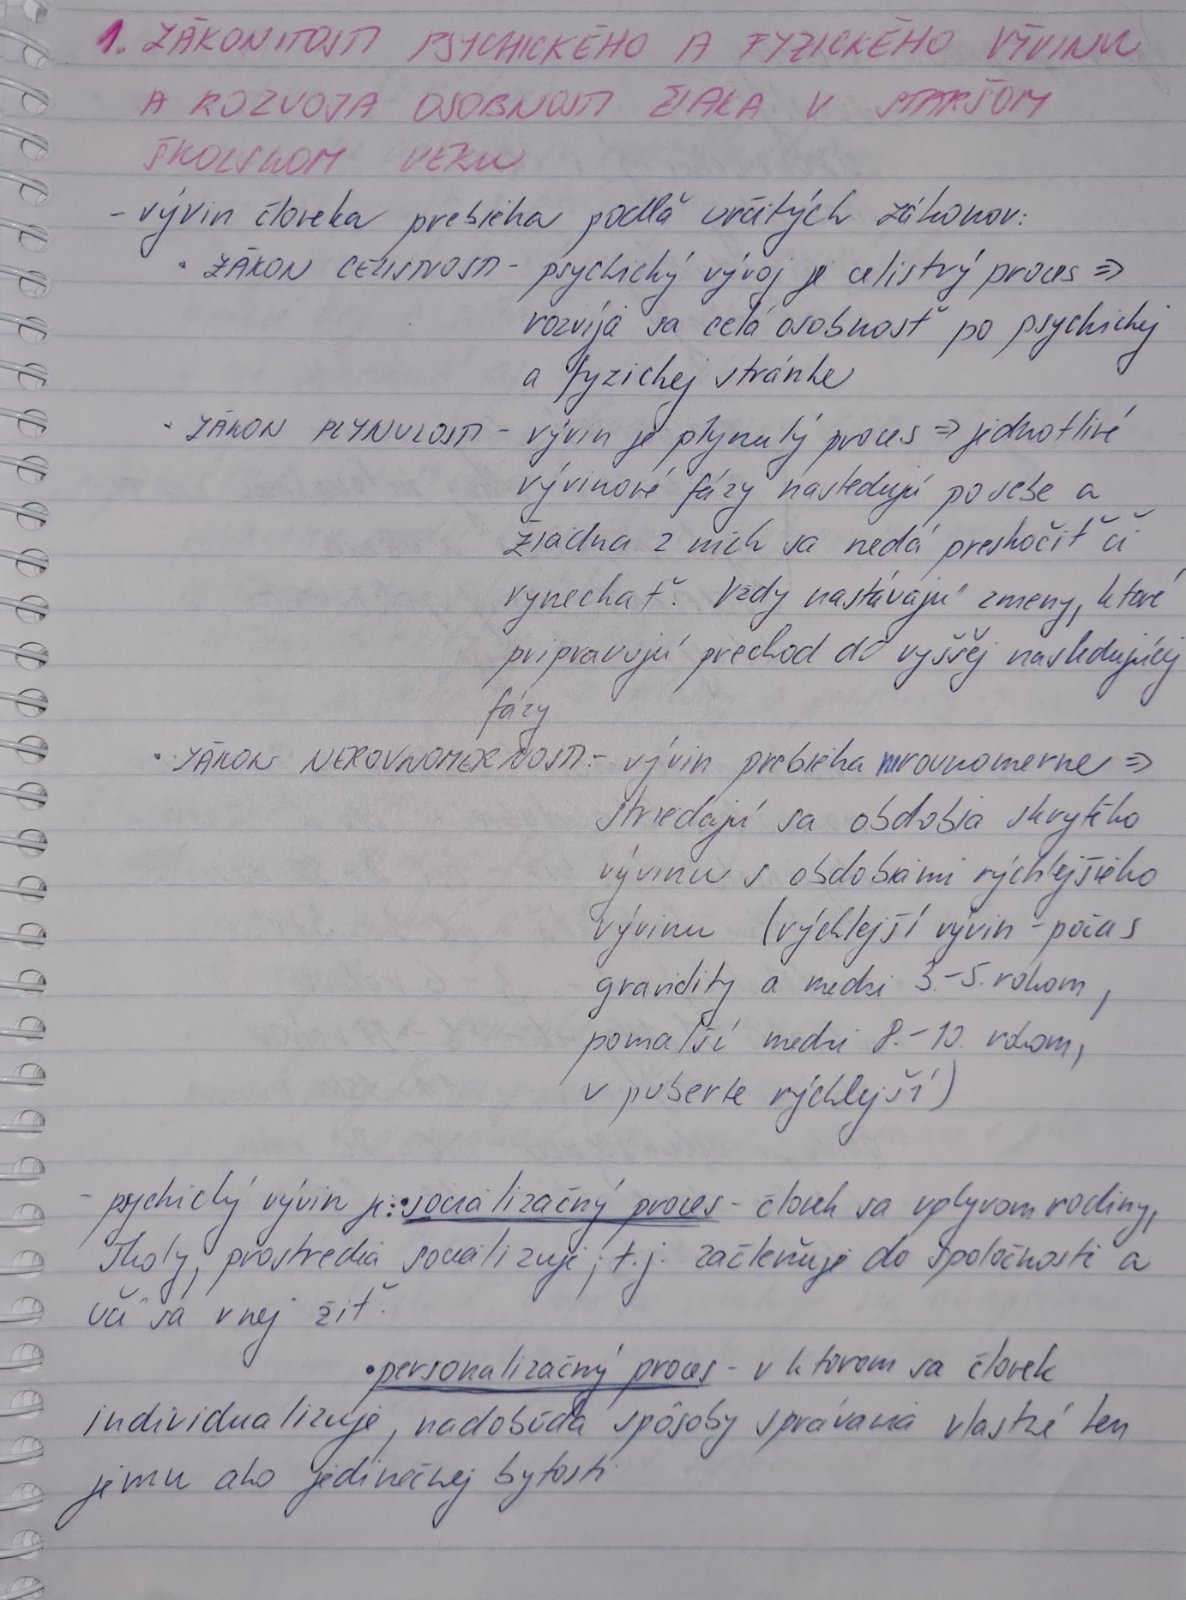 1. ZÁKONITOSTI PSYCHICKÉHO A FYZICKÉHO VÝVINU
A ROZVOJA OSOBNOSTI ŽIAKA V STARŠOM
ŠKOLSKOM VEKU
- vývin človeka prebieha podľa určitých zákonov:
• ZÁKON CELISTVOSTI - psychický vývoj je celistvý proces ⇒
rozvíja sa celá osobnosť po psychickej
a fyzickej stránke
• ZÁKON PLYNULOSTI - vývin je plynulý proces ⇒ jednotlivé
vývinové fázy nasledujú po sebe a
žiadna z nich sa nedá preskočiť či
vynechať. Vždy nastávajú zmeny, ktoré
pripravujú prechod do vyššej nasledujúcej
fázy
• ZÁKON NEROVNOMERNOSTI - vývin prebieha nerovnomerne ⇒
striedajú sa obdobia skrytého
vývinu s obdobiami rýchlejšieho
vývinu (rýchlejší vývin - počas
gravidity a medzi 3.-5. rokom,
pomalší medzi 8.-10. rokom,
v puberte rýchlejší)
- psychický vývin je: • socializačný proces - človek sa vplyvom rodiny,
školy, prostredia socializuje, t.j. začleňuje do spoločnosti a
učí sa v nej žiť.
• personalizačný proces - v ktorom sa človek
individualizuje, nadobúda spôsoby správania vlastné len
jemu ako jedinečnej bytosti